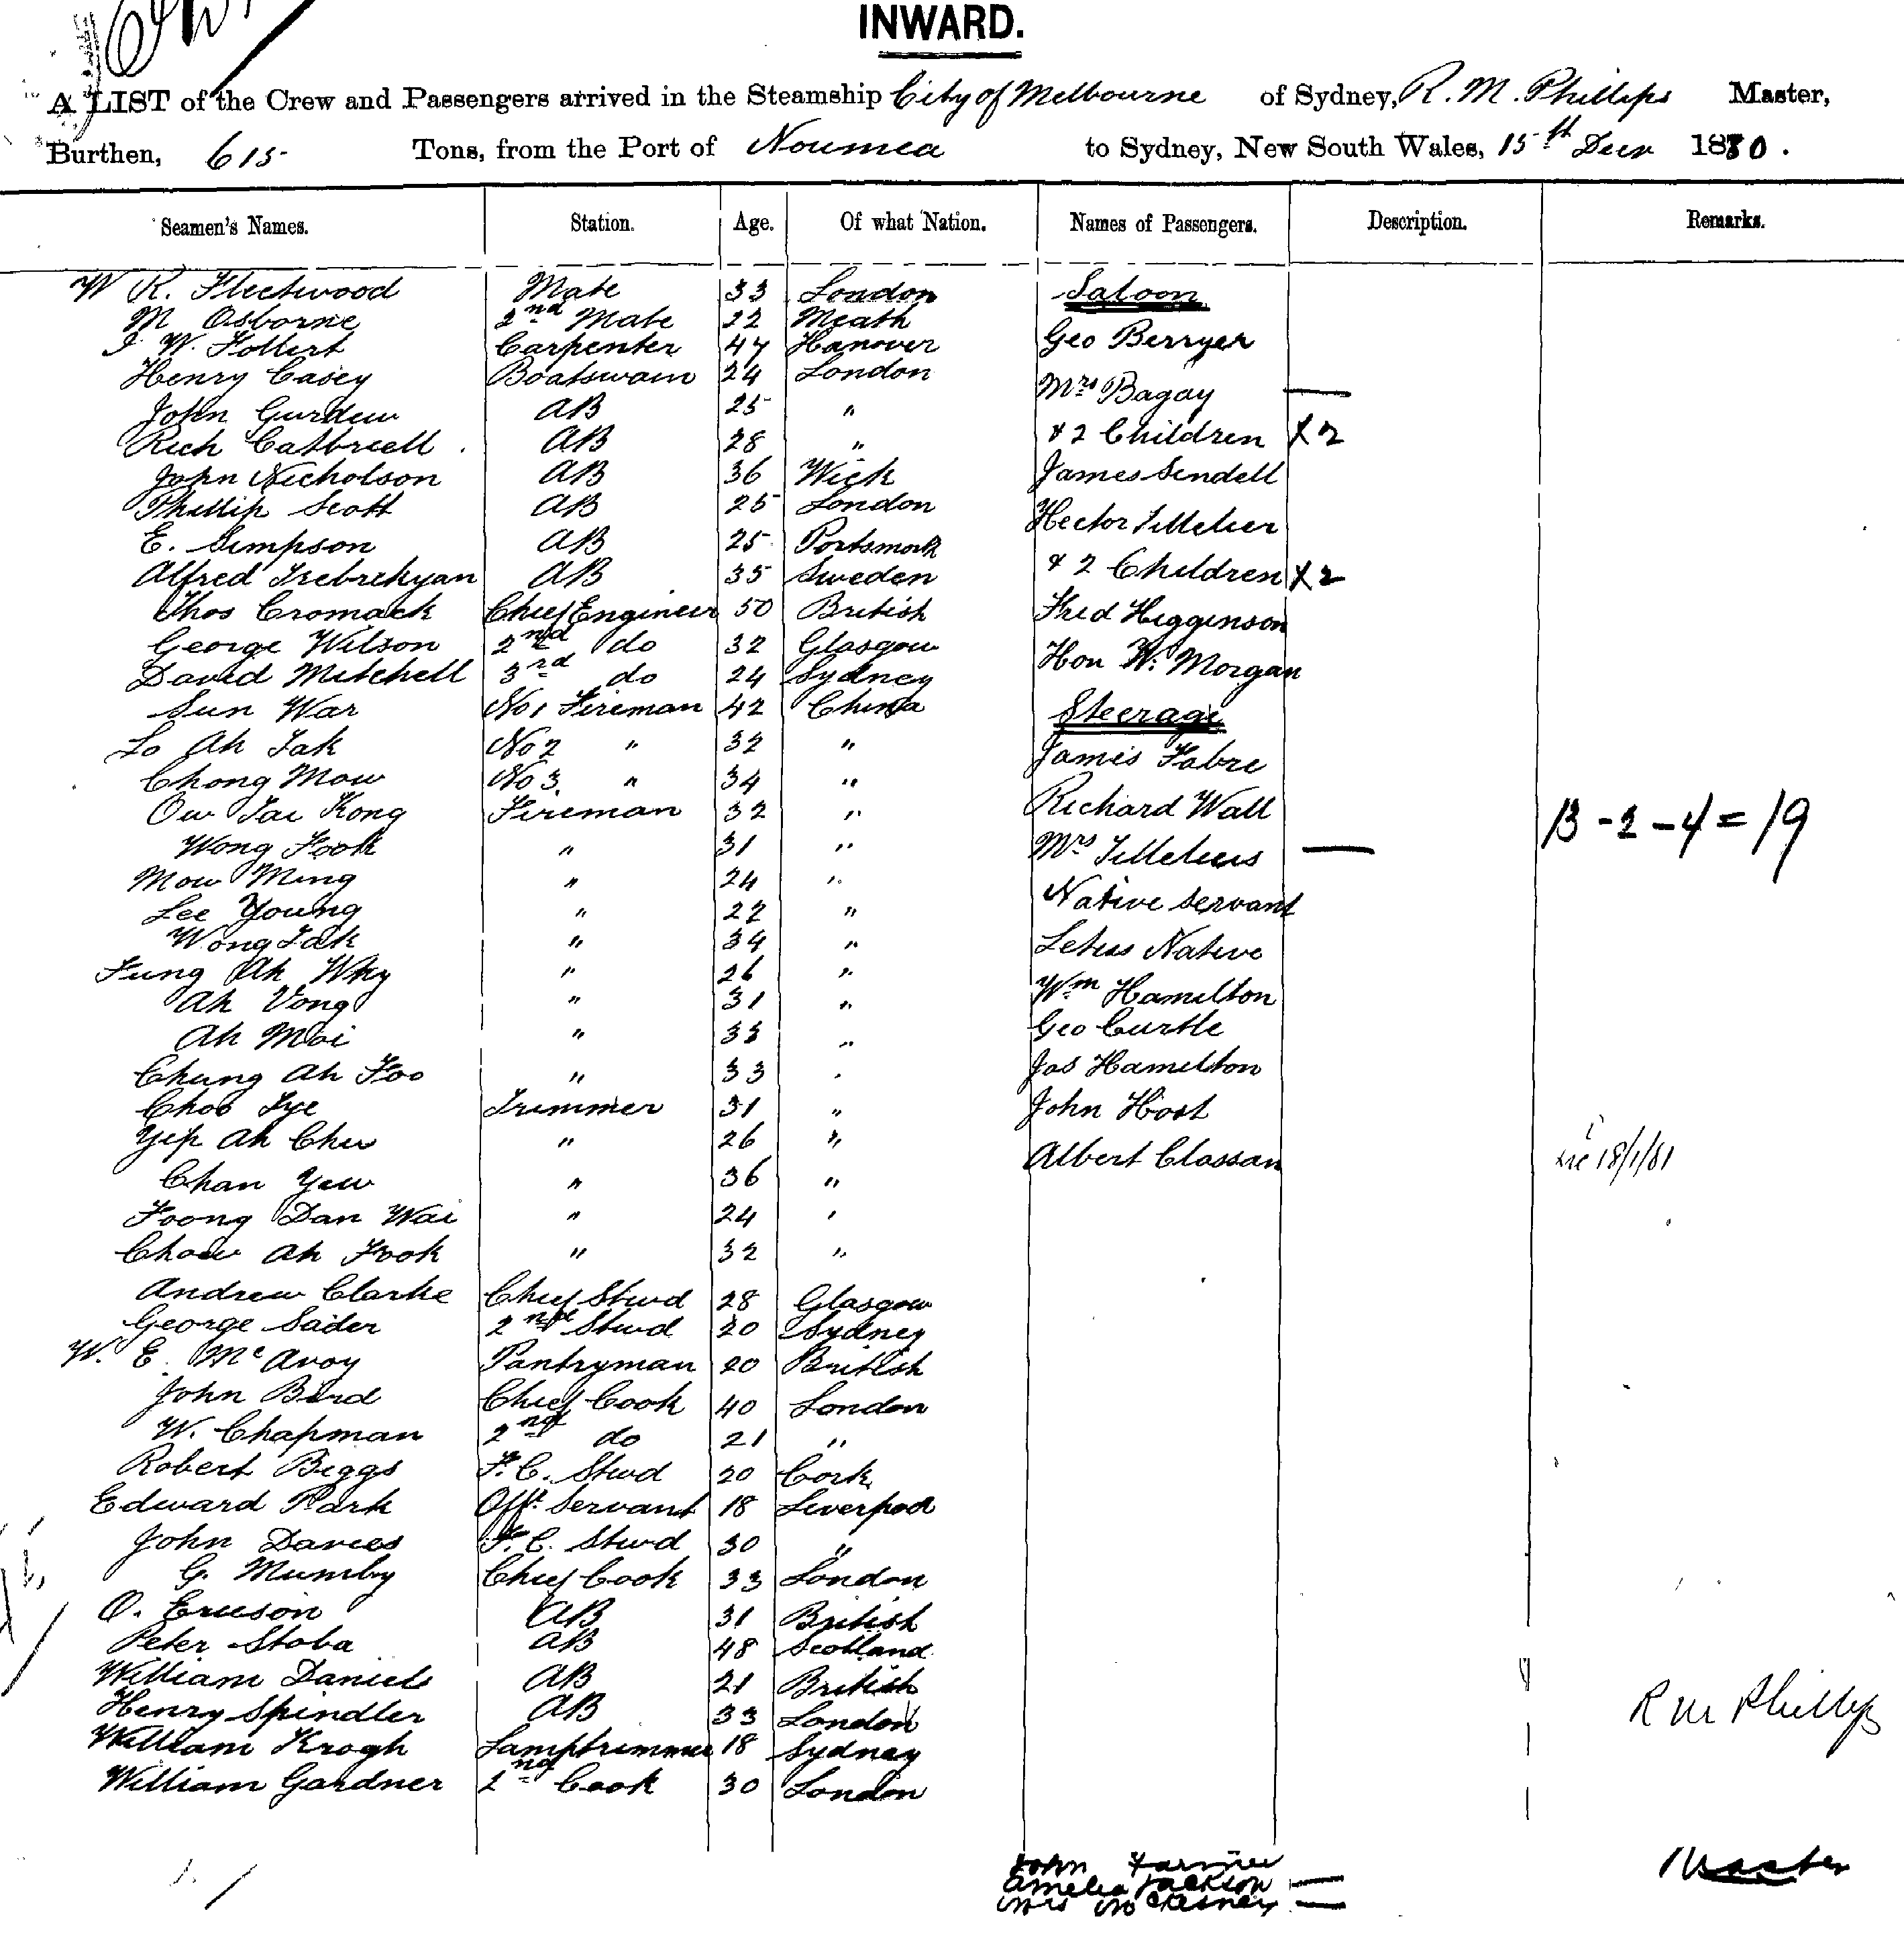 INWARD.
A LIST of the Crew and Passengers arrived in the Steamship City of Melbourne of Sydney, R. M. Phillips Master,
Burthen, 615 Tons, from the Port of Noumea to Sydney, New South Wales, 15th Decr 1880.
Seamen's Names. Station. Age. Of what Nation. Names of Passengers. Description. Remarks.
W R. Fleetwood Mate 33 London Saloon
M Osborne 2nd Mate 22 Meath
J W. Follert Carpenter 47 Hanover Geo Berryer
Henry Casey Boatswain 24 London
Mrs Bagay —
John Gurdew AB 25 "
Rich Catbreell AB 28 " & 2 Children X 2
John Nicholson AB 36 Wick James Sendell
Phillip Scott AB 25 London
Hector Lilleluer
E. Simpson AB 25 Portsmoth
Alfred Trebrekyan AB 35 Sweden & 2 Children X 2
Thos Cromack Chief Engineer 50 British Fred Higginson
George Wilson 2nd do 32 Glasgow
David Mitchell 3rd do 24 Sydney Hon W. Morgan
Sun War No 1 Fireman 42 China Steerage
Lo Ah Tak No 2 " 32 " James Fabre
Chong Mow No 3 " 34 "
Ow Tai Kong Fireman 32 " Richard Wall
13 - 2 - 4 = 19
Wong Fook " 31 " Mrs —
Mow Ming " 24 "
Lee Young " 22 " Native servant
Wong Tak " 34 " Letus Native
Fung Ah Why " 26 "
Ah Vong " 31 " Wm Hamilton
Ah Moi " 33 " Geo Curtle
Chung Ah Foo " 33 " Jas Hamilton
Choo Tye Trimmer 31 " John Host
Yip Ah Chu " 26 "
Albert Classan 18/1/81
Chan Yew " 36 "
Foong Dan Wai " 24 "
Chow Ah Fook " 32 "
Andrew Clarke Chief Stwd 28 Glasgow
George Sader 2nd Stwd 20 Sydney
W. E. McAvoy Pantryman 20 British
John Bird Chief Cook 40 London
W. Chapman 2nd do 21 "
Robert Biggs F. C. Stwd 20 Cork
Edward Park Offr Servant 18 Liverpool
John Davies F. C. Stwd 30 "
G. Mumby Chief Cook 33 London
O. Ericson AB 31 British
Peter Stoba AB 48 Scotland
William Daniels AB 21 British
Henry Spindler AB 33 London R M Phillips
William Krogh Lamptrimmer 18 Sydney
William Gardner 2nd Cook 30 London
John Farmer Master
Amelia Jackson —
Mrs McChesney —